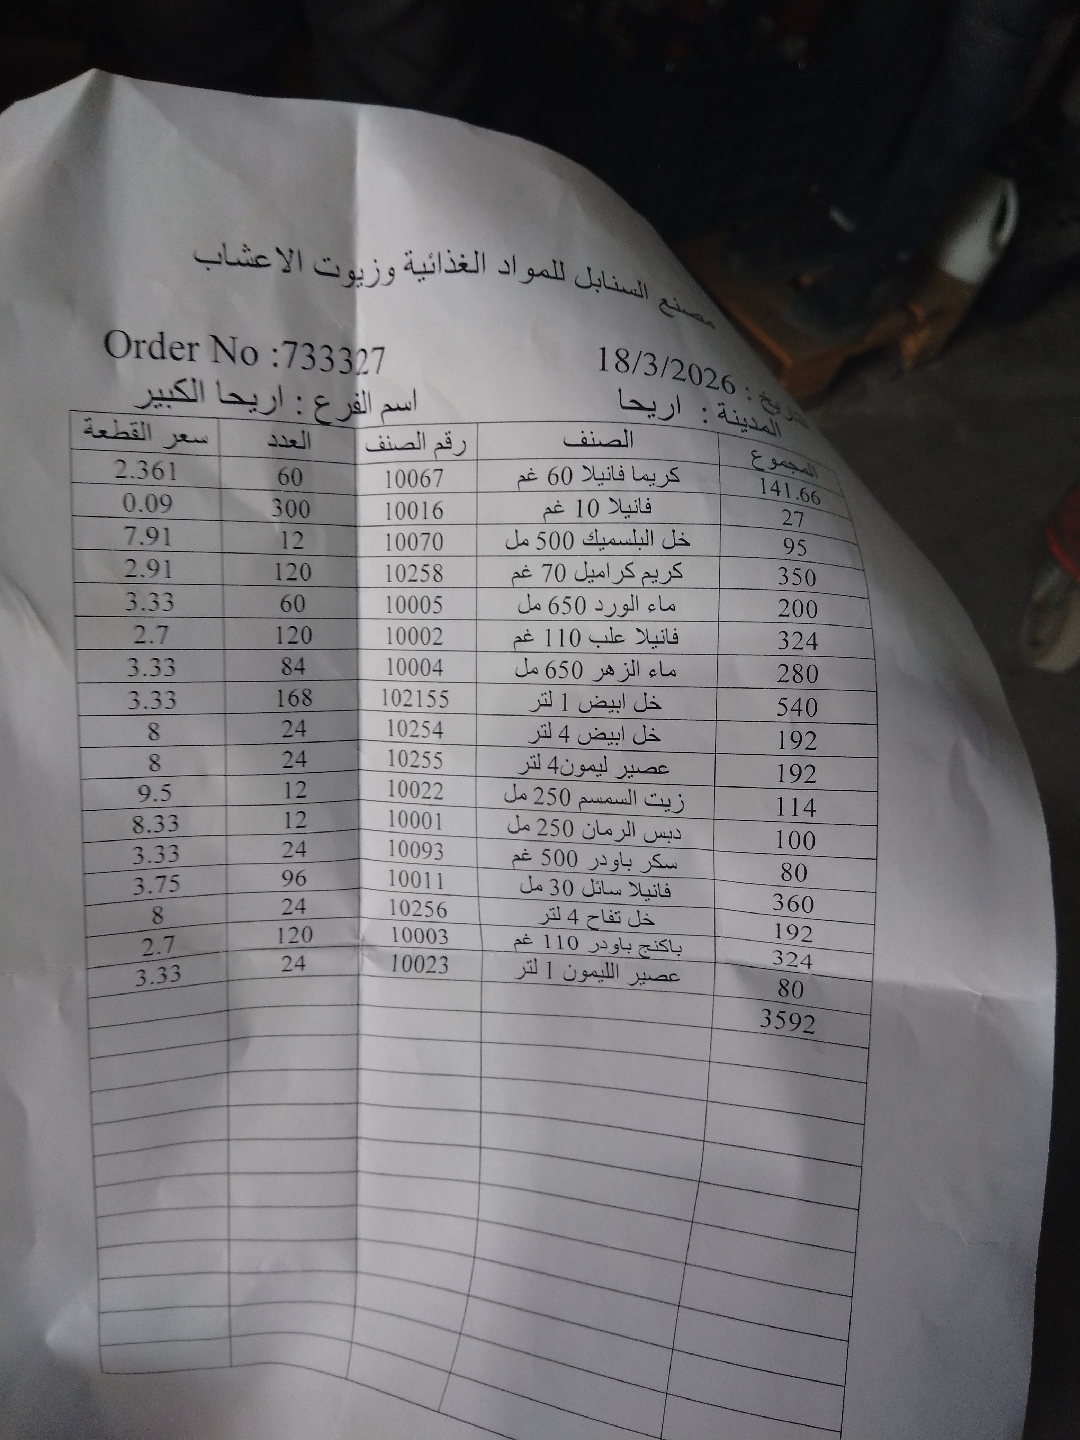 مصنع السنابل للمواد الغذائية وزيوت الاعشاب
Order No :733327 18/3/2026 :
اسم الفرع : اريحا الكبير المدينة : اريحا
سعر القطعة العدد رقم الصنف الصنف المجموع
2.361 60 10067 كريما فانيلا 60 غم 141.66
0.09 300 10016 فانيلا 10 غم 27
7.91 12 10070 خل البلسميك 500 مل 95
2.91 120 10258 كريم كراميل 70 غم 350
3.33 60 10005 ماء الورد 650 مل 200
2.7 120 10002 فانيلا علب 110 غم 324
3.33 84 10004 ماء الزهر 650 مل 280
3.33 168 102155 خل ابيض 1 لتر 540
8 24 10254 خل ابيض 4 لتر 192
8 24 10255 عصير ليمون4 لتر 192
9.5 12 10022 زيت السمسم 250 مل 114
8.33 12 10001 دبس الرمان 250 مل 100
3.33 24 10093 سكر باودر 500 غم 80
3.75 96 10011 فانيلا سائل 30 مل 360
8 24 10256 خل تفاح 4 لتر 192
2.7 120 10003 باكنج باودر 110 غم 324
3.33 24 10023 عصير الليمون 1 لتر 80
3592